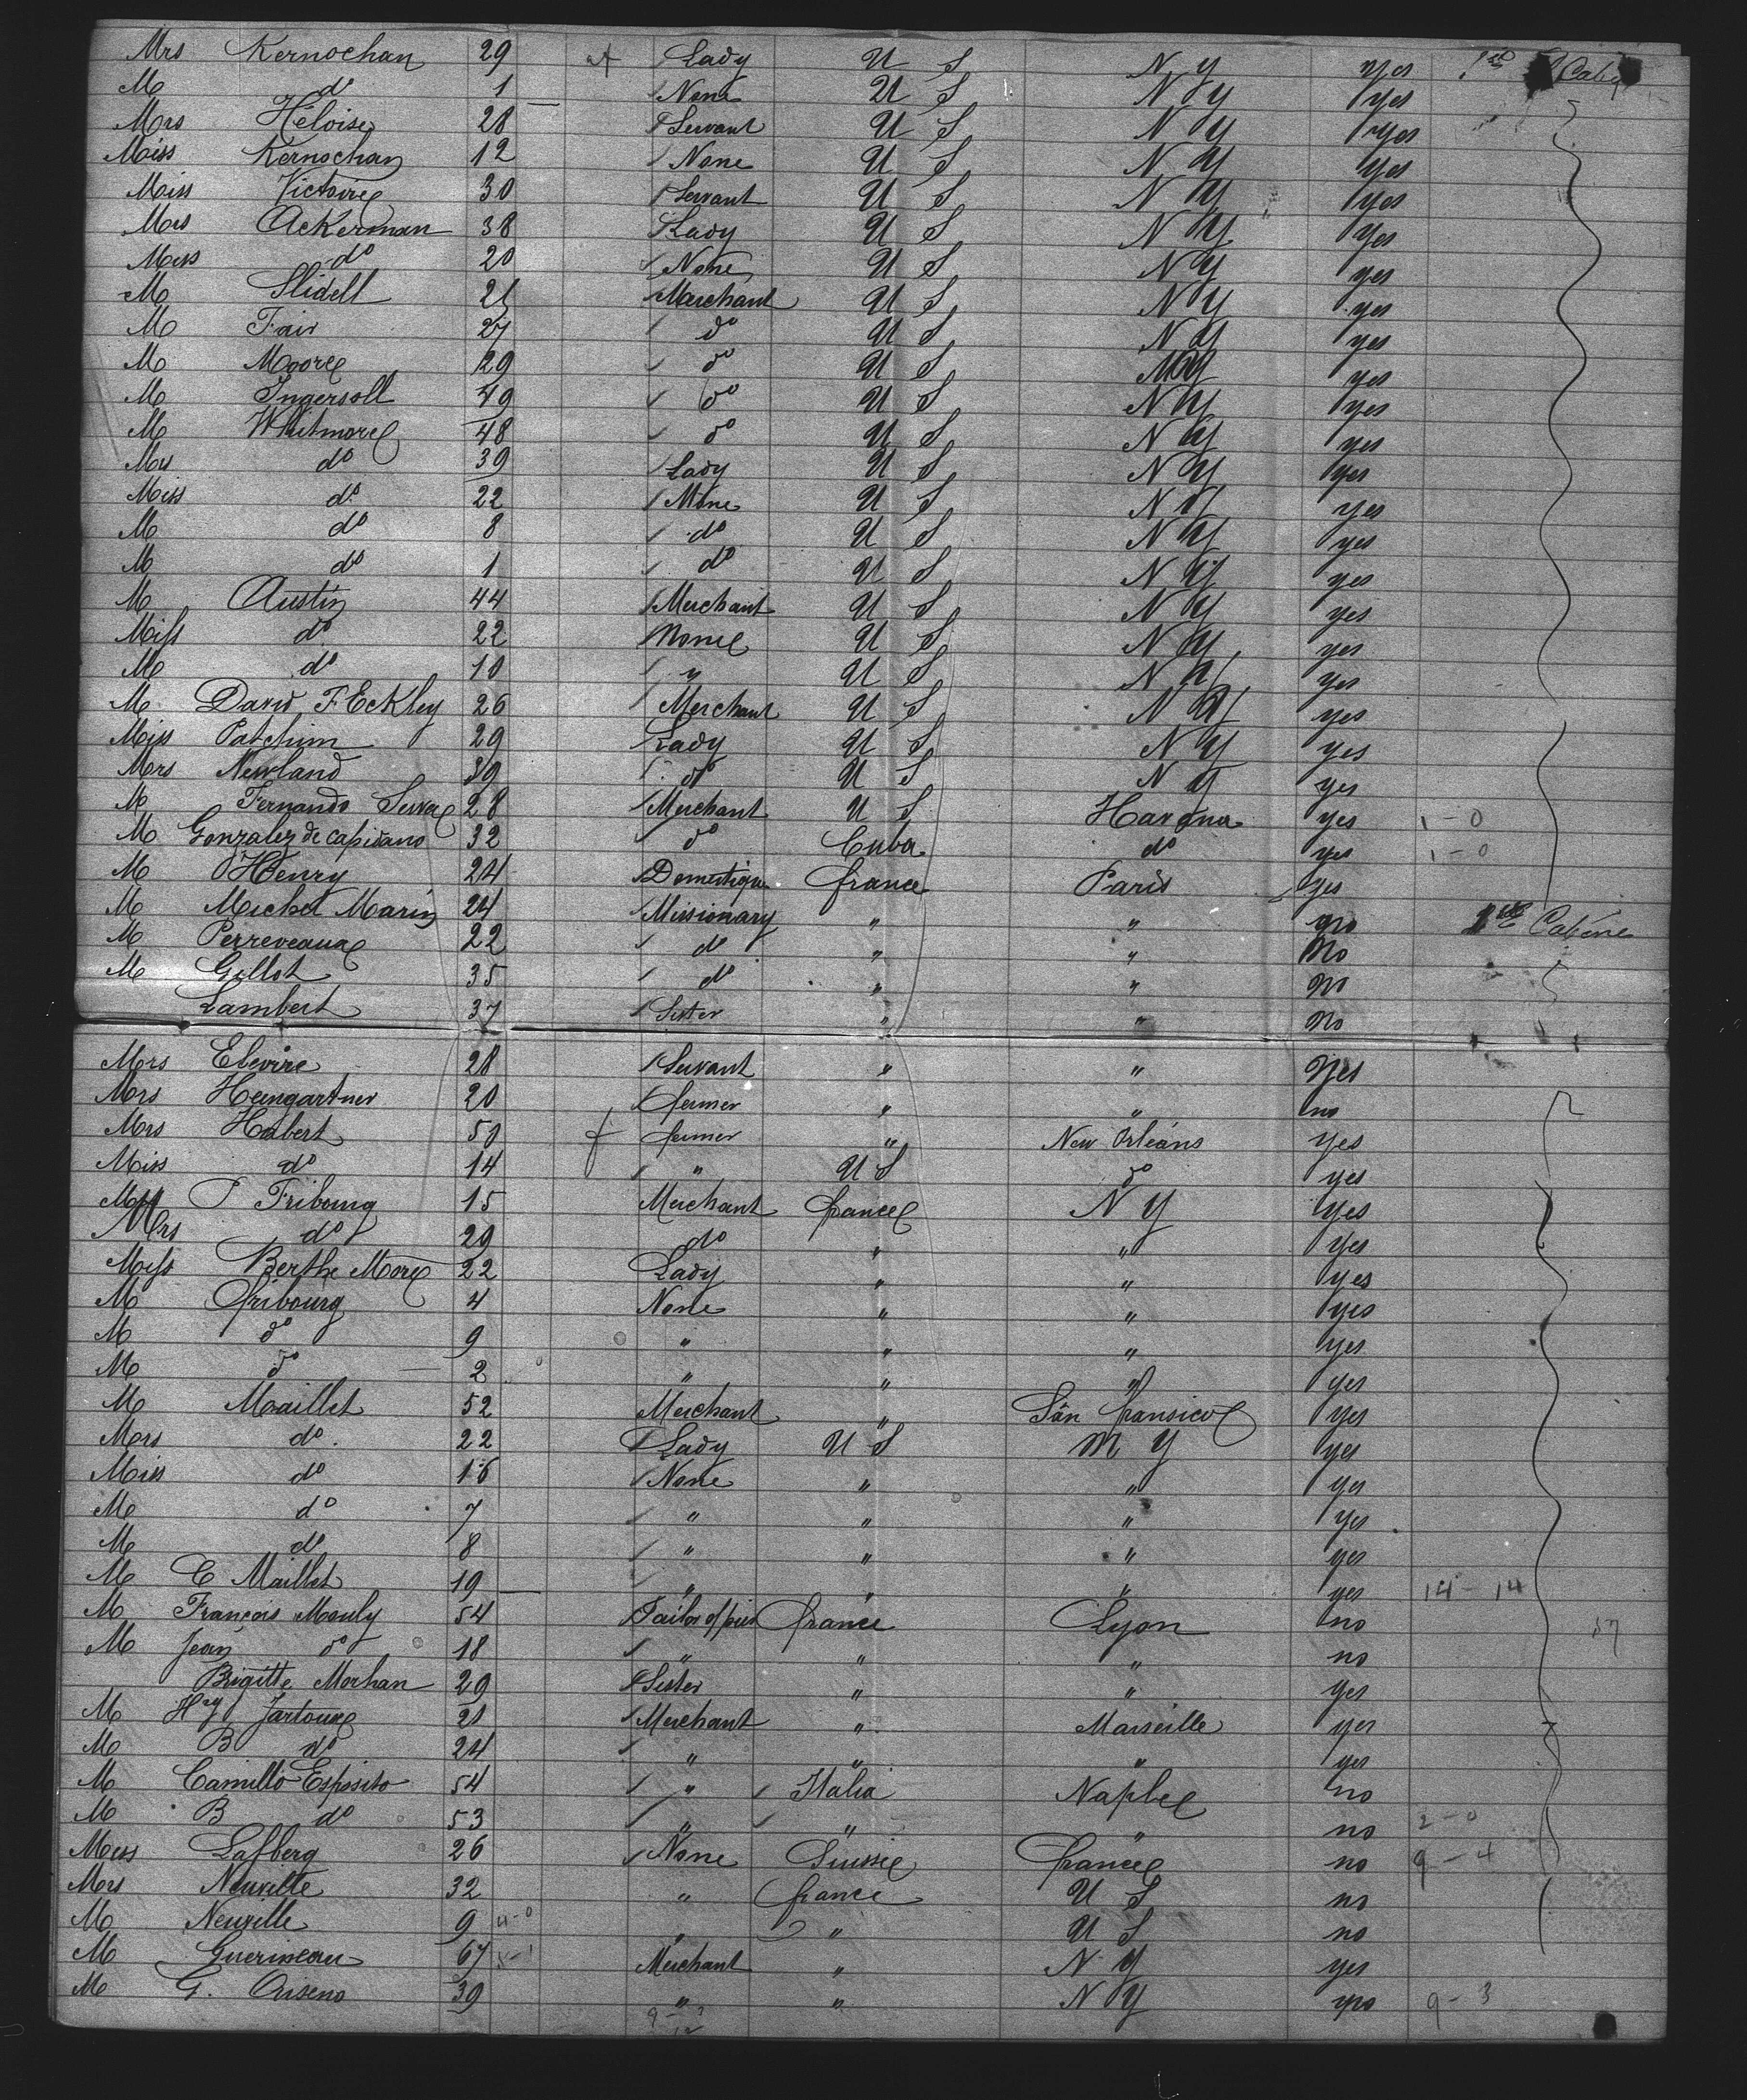 Mrs Kernochan 29 Lady U S N Y yes 1re Cabin
M do 1 None U S N Y yes
Mrs Héloise 28 Servant U S N Y yes
Miss Kernochan 12 None U S N Y yes
Miss Victoire 30 Servant U S N Y yes
Mrs Ackerman 38 Lady U S N Y yes
Miss do 20 None U S N Y yes
M Slidell 21 Merchant U S N Y yes
M Fair 27 do U S N Y yes
M Moore 29 do U S N Y yes
M Ingersoll 49 do U S N Y yes
M Whitmore 48 do U S N Y yes
Mrs do 39 Lady U S N Y yes
Miss do 22 None U S N Y yes
M do 8 do U S N Y yes
M do 1 do U S N Y yes
M Austin 44 Merchant U S N Y yes
Miss do 22 None U S N Y yes
M do 10 " U S N Y yes
M David F Eckley 26 Merchant U S N Y yes
Miss Patchim 29 Lady U S N Y yes
Mrs Newland 39 do U S N Y yes
M Fernando 28 Merchant U S Havana yes 1-0
M Gonzalez de capidano 32 do Cuba do yes 1-0
M Henry 24 Domestique france Paris yes
M Michel Marin 24 Missionary " " no Cabine
M Perreveaux 22 do " " No
M Gillot 35 do " " no
Lambert 37 Sister " " no
Mrs Elevire 28 Servant " " yes
Mrs Heingartner 20 fermer " " no
Mrs Habert 50 fermer " New Orléans yes
Miss do 14 " U S do yes
J Fribourg 15 Merchant france N Y yes
Mrs do 29 do " " yes
Miss Berthe More 22 Lady " " yes
M fribourg 4 None " " yes
M do 9 " " " yes
M do 2 " " " yes
M Maillet 52 Merchant " Sân fransico yes
Mrs do 22 Lady U S N Y yes
Miss do 16 None " " yes
M do 7 " " " yes
M do 8 " " " yes
M C Maillet 19 " " " yes 14-14
M François Mouly 54 france Lyon no
M Jean do 18 " " " no
Brigitte Morhan 29 Sister " " yes
M Hry Jartoux 21 Merchant " Marseille yes
M B do 24 " " " yes
M Camillo Esposito 54 " Italia Naple no
M B do 53 " " " no 2-0
Miss Lafberg 26 None Suisse france no 9-4
Mrs Neuville 32 " france U S no
M Neuville 9 4-0 " " U S no
M Guerineau 67 Merchant " N Y yes
M G. Criseno 39 " " N Y yes 9-3